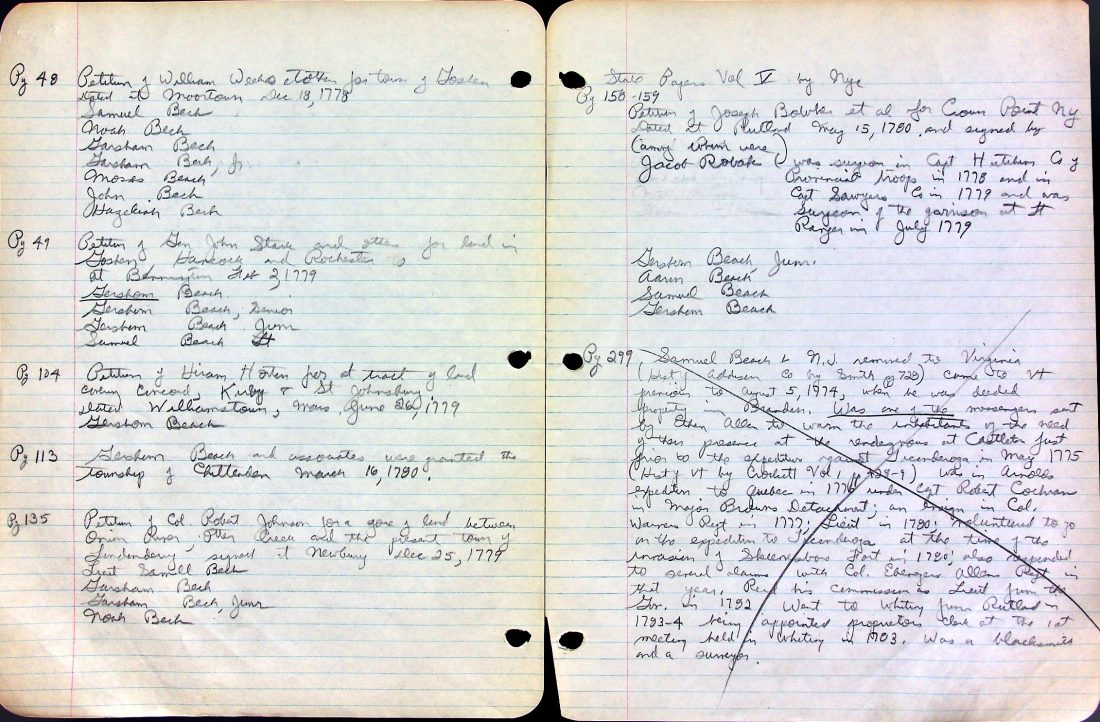 Pg 48 Petition of William Weeks & others for town of Goshen
Dated at Moortown Dec 18, 1778
Samuel Bech
Noah Bech
Garsham Bech
Garsham Bech, Jr
Moses Beach
John Bech
Hazekiah Bech
Pg 49 Petition of Gen John Stark and others for land in
Goshen Hancock and Rochester
at Bennington Feb 2, 1779
Gershom Beach
Gershom Beach, Senior
Gershom Beach Junr
Samuel Beach
Pg 104 Petition of Hiram Horten for a tract of land
Concord, Kirby & St Johnsbury
dated Williamstown, Mass June 26, 1779
Gershom Beach
Pg 113 Gershom Beach and associates were granted the
township of Chittenden March 16, 1780.
Pg 135 Petition of Col. Robert Johnson for a gore of land between
Onion River, Otter Creek and the present town of
signed at Newbury Dec 25, 1779
Lieut Samll Bech
Garsham Bech
Garsham Bech, Junr
Noah Bech
State Papers Vol V by Nye
Pg 158-159
Petition of Joseph Bowker et al for Crown Point Ny
Dated at Rutland May 15, 1780 and signed by
(among whom were)
Jacob Roback (was surgeon in Capt Hutchins Co of
Provincial troops in 1778 and in
Capt Sawyers Co in 1779 and was
Surgeon of the garrison at Ft
Ranger in July 1779
Gershom Beach Junr.
Aaron Beach
Samuel Beach
Gershom Beach
Pg 299 Samuel Beach b N.J. removed to Virginia
(Hist of Addison Co by Smith pg 728) came to Vt
previous to August 5, 1774, when he was deeded
property in Brandon. Was one of the messengers sent
by Ethan Allen to warn the inhabitants of the need
of their presence at the rendezvous at Castleton just
prior to the expedition against Ticonderoga in May 1775
(Hist of Vt by Crockett Vol 1, ) was in Arnolds
expedition to Quebec in 1776 under Cpt Robert Cochran
in Major Browns Detachment; an ensign in Col.
Warners Regt in 1777; Lieut in 1780; Volunteered to go
on the expedition to Ticonderoga at the time of the
invasion of Skenesboro Fort in 1780; also responded
to several alarms with Col. Ebenezer Allens Regt in
that year. Recd his commission as Lieut from the
Gov. in 1782 Went to Whiting from Rutland in
1783-4 being appointed proprietors clerk at the 1st
meeting held in Whiting in 1783. Was a blacksmith
and a surveyor.